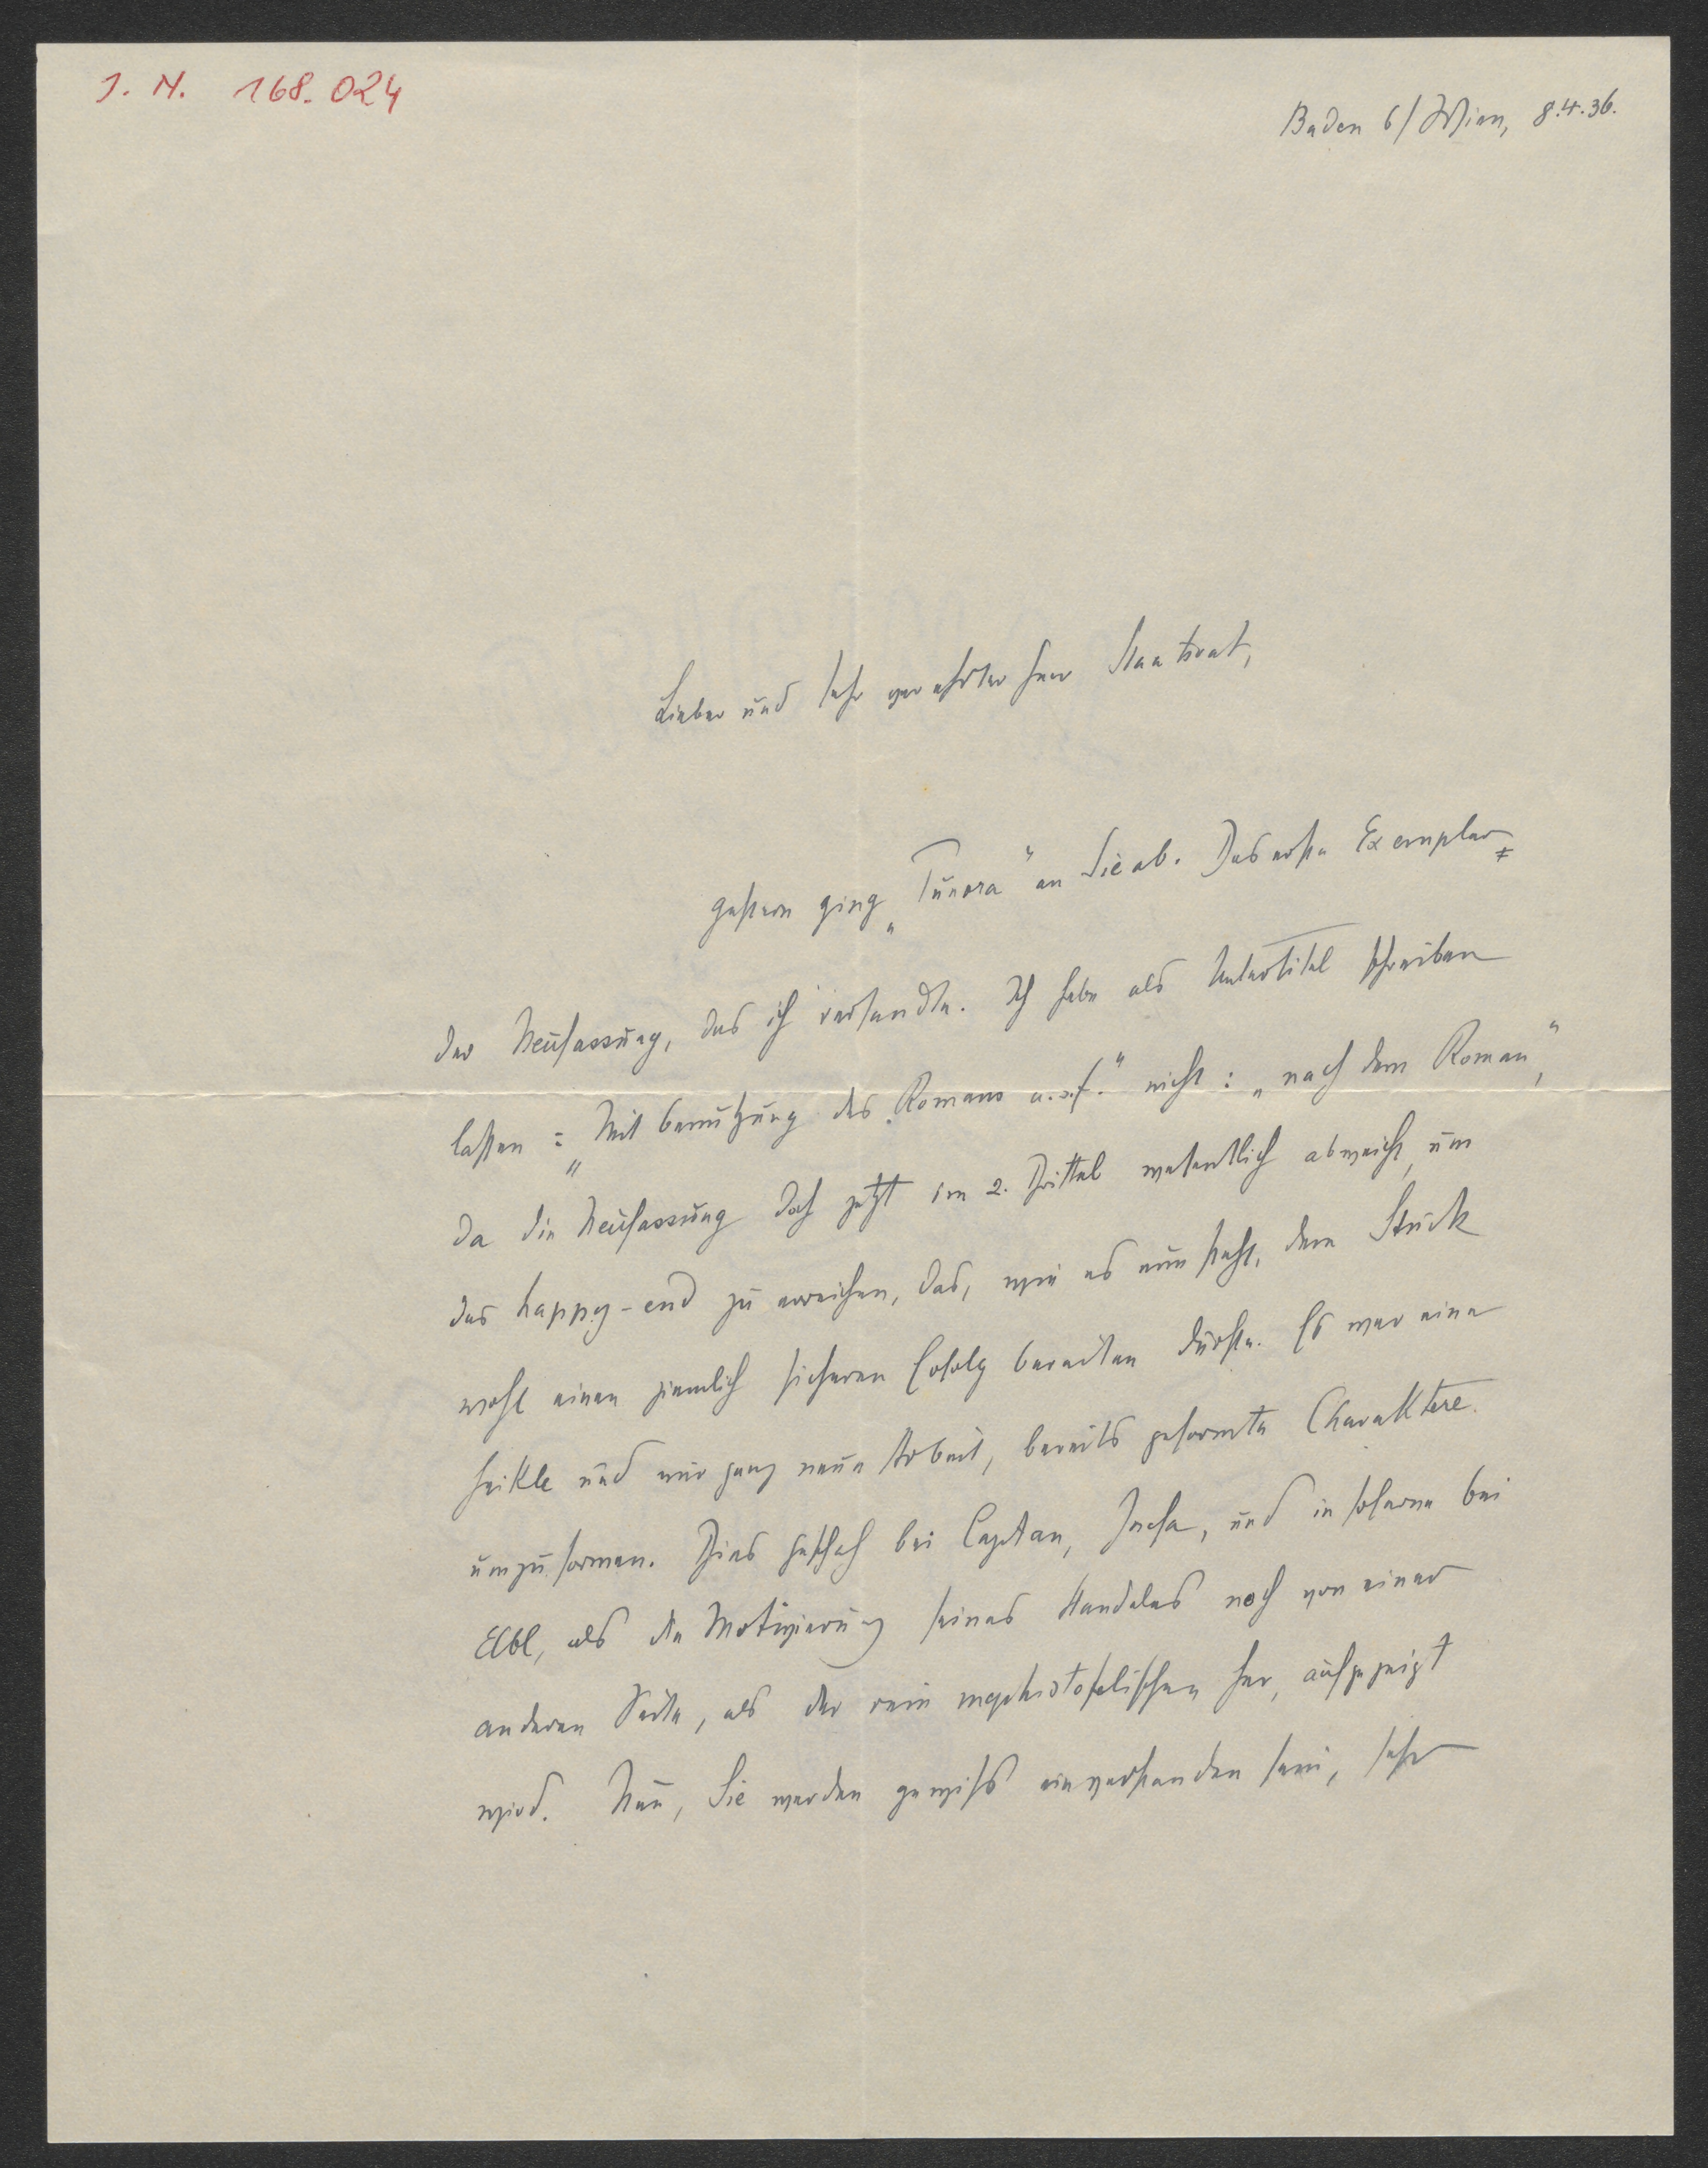 J. N. 168.024
Baden b/Wien, 8.4.36.
Lieber und sehr verehrter Herr Staatsrat,
gestern ging „Tunora" an Sie ab. Das erste Exemplar
der Neufassung, das ich versandte. Ich habe als Untertitel schreiben
lassen: „Mit Benützung des Romans u.s.f." nicht: „nach dem Roman",
da die Neufassung doch jetzt im 2. Drittel wesentlich abweicht, um
das happy-end zu erreichen, das, wie es nun steht, dem Stück
wohl einen ziemlich sicheren Erfolg bereiten dürfte. Es war eine
heikle und mir ganz neue Arbeit, bereits geformte Charaktere
umzuformen. Dies geschah bei Capitan, und in soferne bei
Elbl, als die Motivierung seines Handelns noch von einer
anderen Seite, als der rein mephistofelischen her, aufgezeigt
wird. Nun, Sie werden gewiss einverstanden sein, sehr